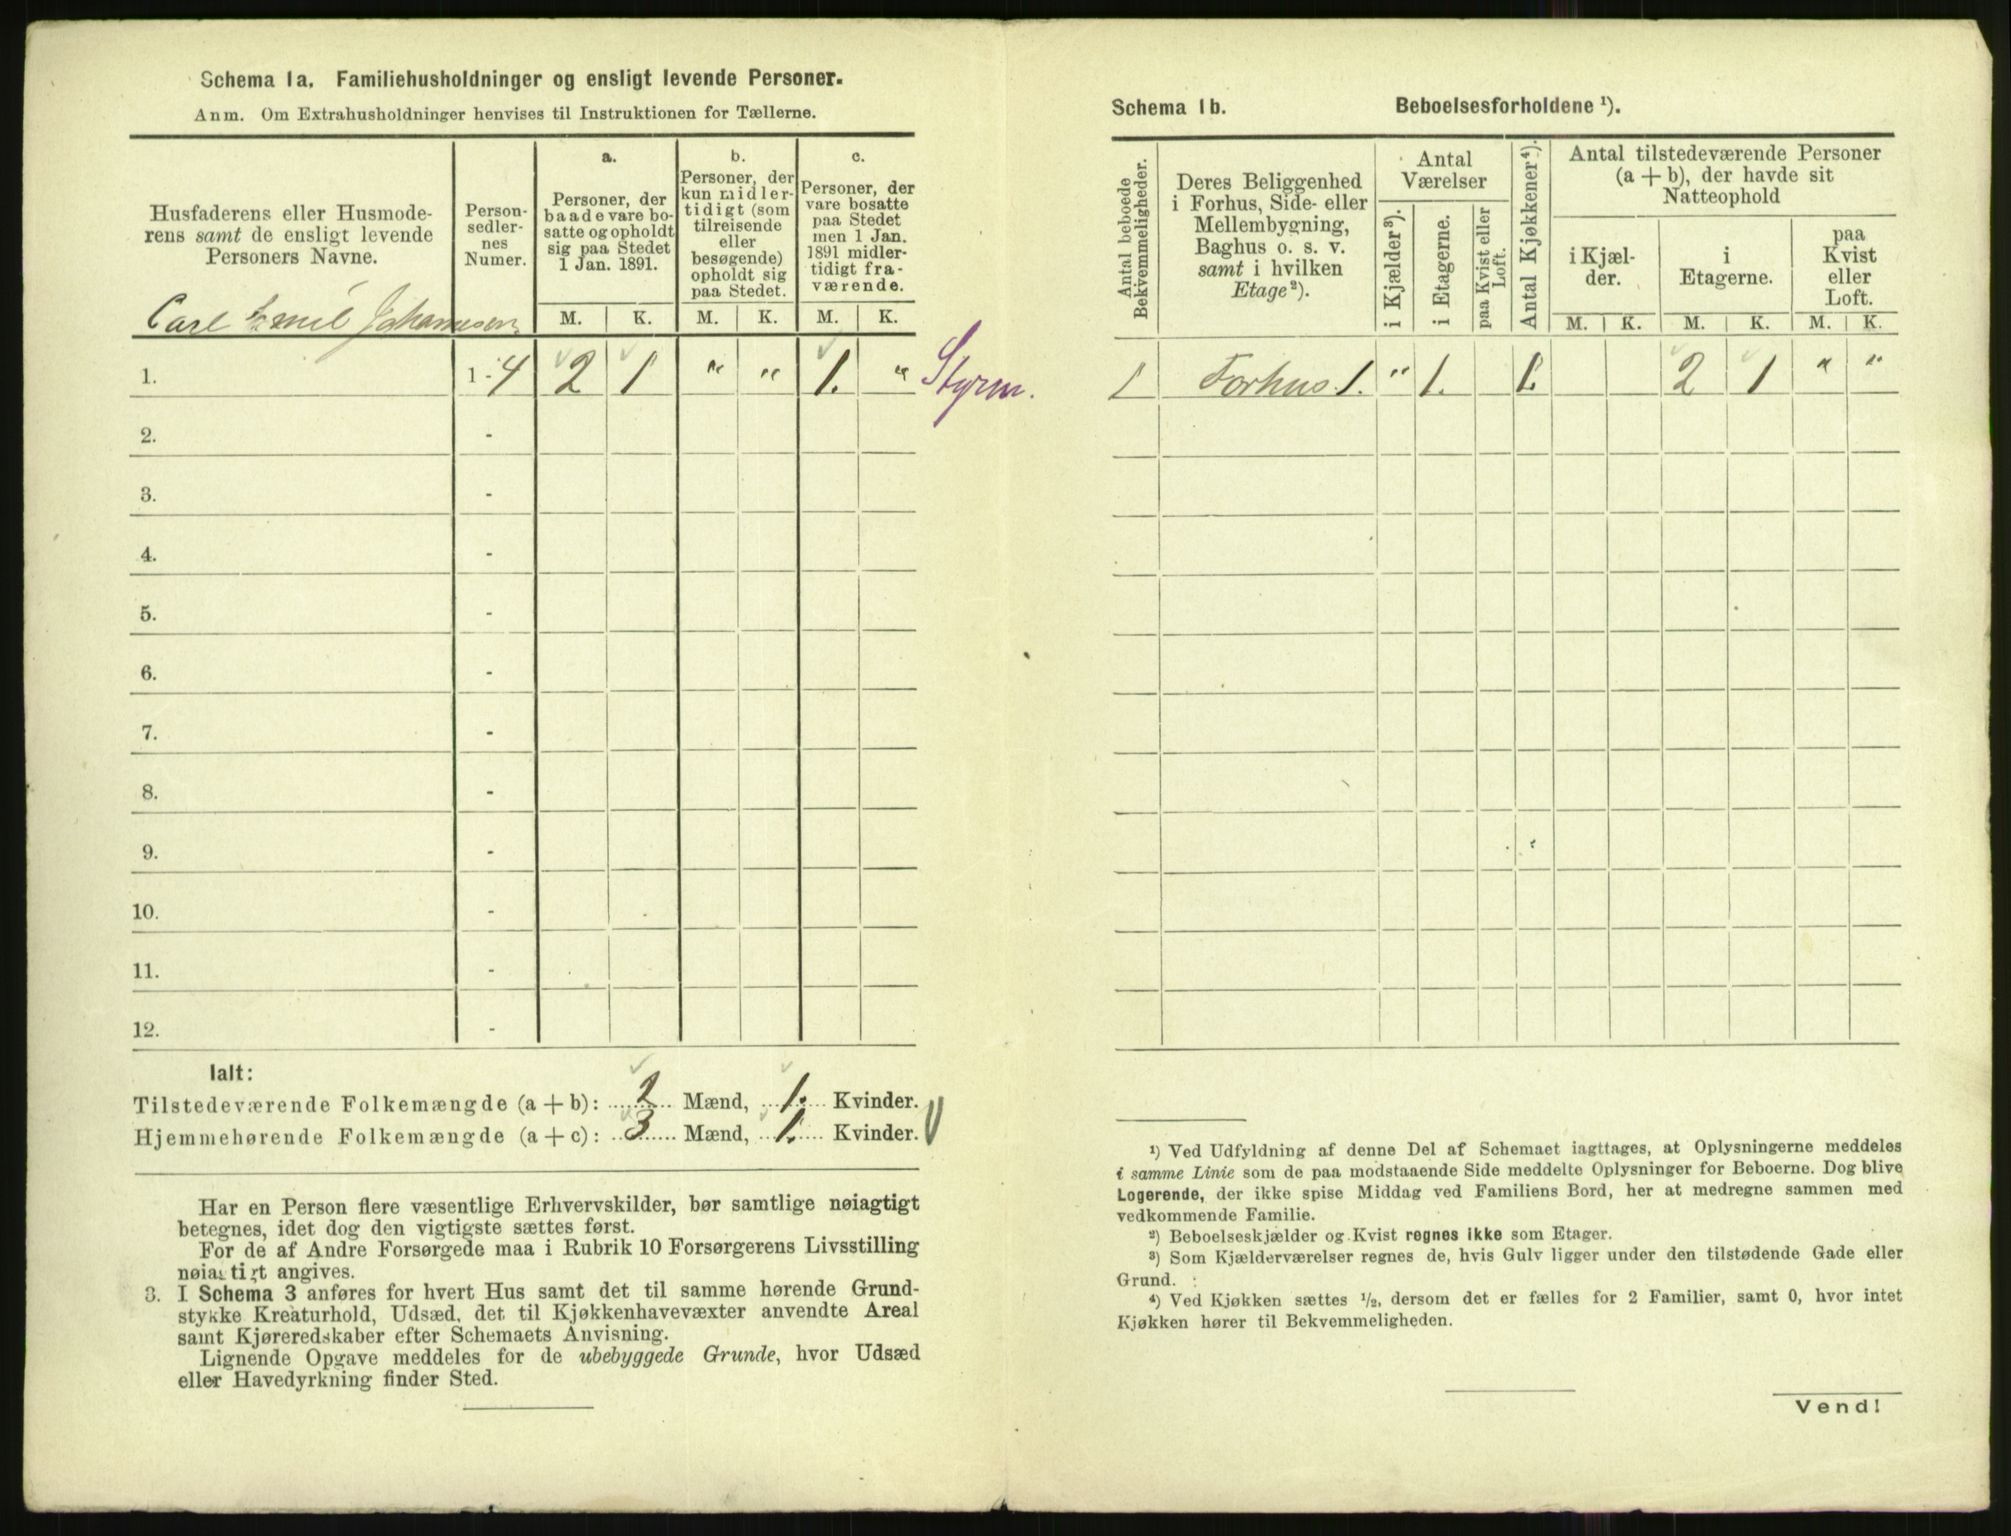 Schema 1a. Familiehusholdninger og ensligt levende Personer.
Anm. Om Extrahusholdninger henvises til Instruktionen for Tællerne.
Husfaderens eller Husmode-
rens samt de ensligt levende
Personers Navne.
Person-
sedler-
nes
Numer.
a.
Personer, der
baade vare bo-
satte og opholdt
sig paa Stedet
1 Jan. 1891.
b.
Personer, der
kun midler-
tidigt (som
tilreisende
eller
besøgende)
opholdt sig
paa Stedet.
c.
Personer, der
vare bosatte
paa Stedet
men 1 Jan.
1891 midler-
tidigt fra-
værende.
M. K. M. K. M. K.
Carl Emil Johannsen
1. 1-4 2 1 " " 1. " Styrm.
2. -
3. -
4. -
5. -
6. -
7. -
8. -
9. -
10. -
11. -
12. -
Ialt:
Tilstedeværende Folkemængde (a + b): 2 Mænd, 1. Kvinder.
Hjemmehørende Folkemængde (a + c): 3 Mænd, 1. Kvinder.
Har en Person flere væsentlige Erhvervskilder, bør samtlige nøiagtigt
betegnes, idet dog den vigtigste sættes først.
For de af Andre Forsørgede maa i Rubrik 10 Forsørgerens Livsstilling
nøiagtigt angives.
3. I Schema 3 anføres for hvert Hus samt det til samme hørende Grund-
stykke Kreaturhold, Udsæd, det til Kjøkkenhavevæxter anvendte Areal
samt Kjøreredskaber efter Schemaets Anvisning.
Lignende Opgave meddeles for de ubebyggede Grunde, hvor Udsæd
eller Havedyrkning finder Sted.
Schema 1b. Beboelsesforholdene ¹).
Antal beboede
Bekvemmeligheder.
Deres Beliggenhed
i Forhus, Side- eller
Mellembygning,
Baghus o. s. v.
samt i hvilken
Etage²).
Antal
Værelser
i Kjælder³).
i Etagerne.
paa Kvist eller
Loft.
Antal Kjøkkener⁴).
Antal tilstedeværende Personer
(a + b), der havde sit
Natteophold
i Kjæl-
der.
i
Etagerne.
paa
Kvist
eller
Loft.
M. K. M. K. M. K.
1 Forhus 1. " 1. 1. 2 1 " "
¹) Ved Udfyldning af denne Del af Schemaet iagttages, at Oplysningerne meddeles
i samme Linie som de paa modstaaende Side meddelte Oplysninger for Beboerne. Dog blive
Logerende, der ikke spise Middag ved Familiens Bord, her at medregne sammen med
vedkommende Familie.
²) Beboelseskjælder og Kvist regnes ikke som Etager.
³) Som Kjælderværelser regnes de, hvis Gulv ligger under den tilstødende Gade eller
Grund.
⁴) Ved Kjøkken sættes ½, dersom det er fælles for 2 Familier, samt 0, hvor intet
Kjøkken hører til Bekvemmeligheden.
Vend!